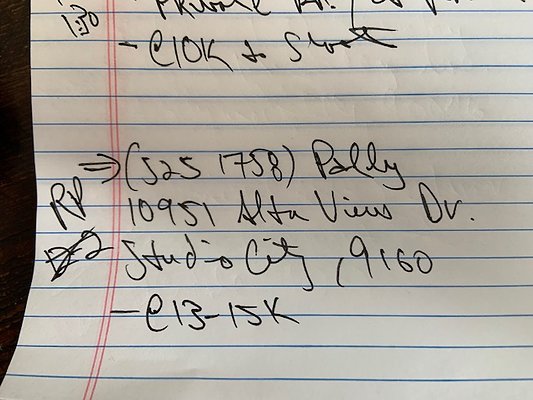 1:30
- @10K + Short
RP => (525 1758) Polly
10951 Alta View Dr.
Studio City, 9160
- @13-15K